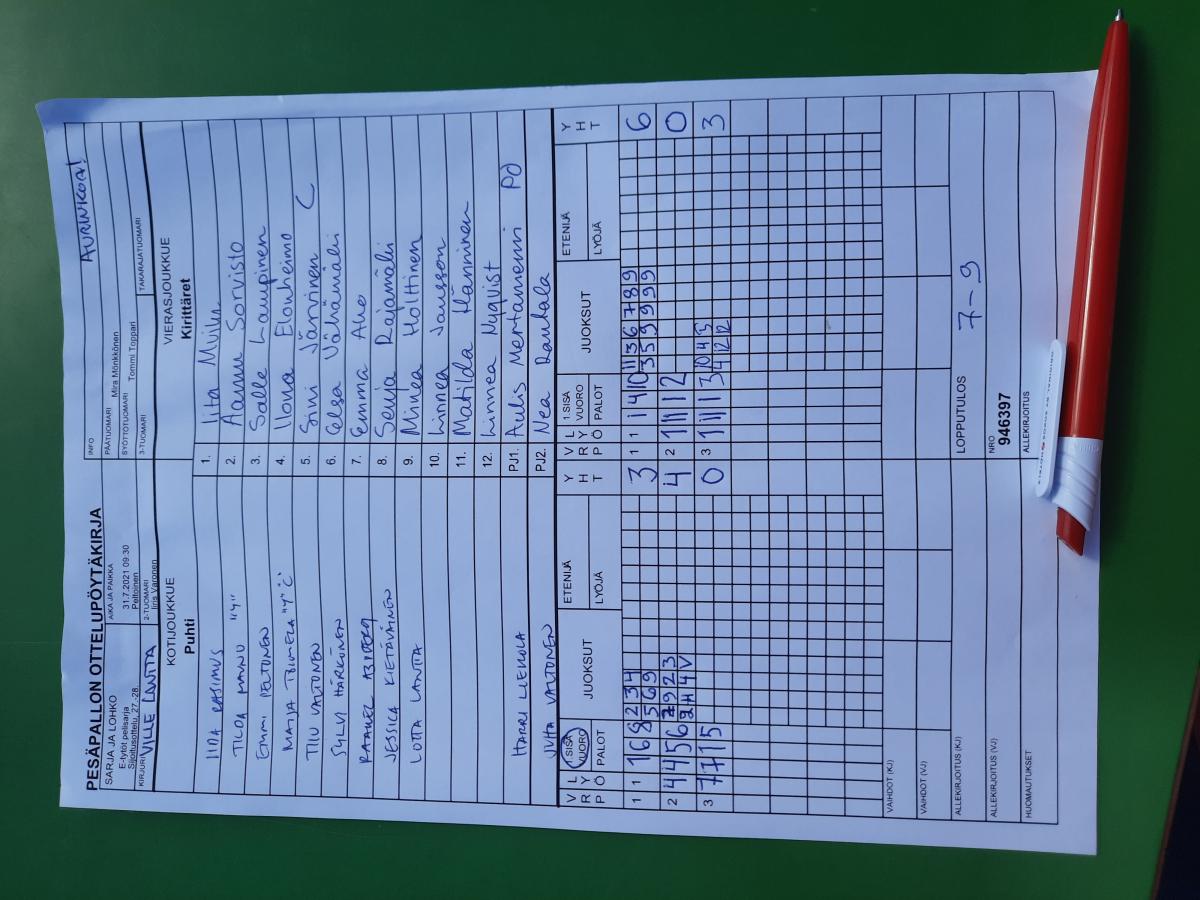 PESÄPALLON OTTELUPÖYTÄKIRJA
INFO
AURINKOA!
SARJA JA LOHKO
E-tytöt pelisarja
Sijoitusottelu, 27.-28.
AIKA JA PAIKKA
31.7.2021 09:30
Peltoinen
PÄÄTUOMARI
Mira Mönkkönen
SYÖTTÖTUOMARI
Tommi Toppari
KIRJURI
VILLE LANTTA
2-TUOMARI
Iiris Varonen
3-TUOMARI
TAKARAJATUOMARI
KOTIJOUKKUE
Puhti
VIERASJOUKKUE
Kirittäret
IIDA RASIMUS 1. Iita
TILDA MANNU "4" 2. Aamu Sorvisto
EMMI PELTONEN 3. Salle Lampinen
MATJA TUOMELA "4" C 4. Ilona Elonheimo
TIIU VALTONEN 5. Sini Järvinen C
SYLVI HÄRKÖNEN 6. Elsa Vähämäki
7. Emma Aho
JESSICA KIETÄVÄINEN 8. Senja Rajamäki
LOTTA LANTTA 9. Minea Holttinen
10. Linnea Jansson
11. Matilda Hänninen
12. Linnea Nyqvist
HARRI LIEKKOLA PJ1. Aulis Mertaniemi PO
JUHA VALTONEN PJ2. Nea Rautala
VRP LYÖ 1 SISÄ VUORO PALOT JUOKSUT ETENIJÄ LYÖJÄ YHT VRP LYÖ 1 SISÄ VUORO PALOT JUOKSUT ETENIJÄ LYÖJÄ YHT
1 1 1 6 8 2 3 4 3 1 1 1 4 10 11 3 6 7 8 9 6
5 6 9 3 5 9 9 9 9
2 4 4 5 6 7 9 2 3 4 2 11 11 12 0
2 H 4 V
3 7 7 1 5 0 3 11 11 13 10 4 3 3
4 12 12
VAIHDOT (KJ)
VAIHDOT (VJ)
ALLEKIRJOITUS (KJ)
LOPPUTULOS
7-9
ALLEKIRJOITUS (VJ)
NRO
946397
HUOMAUTUKSET
ALLEKIRJOITUS